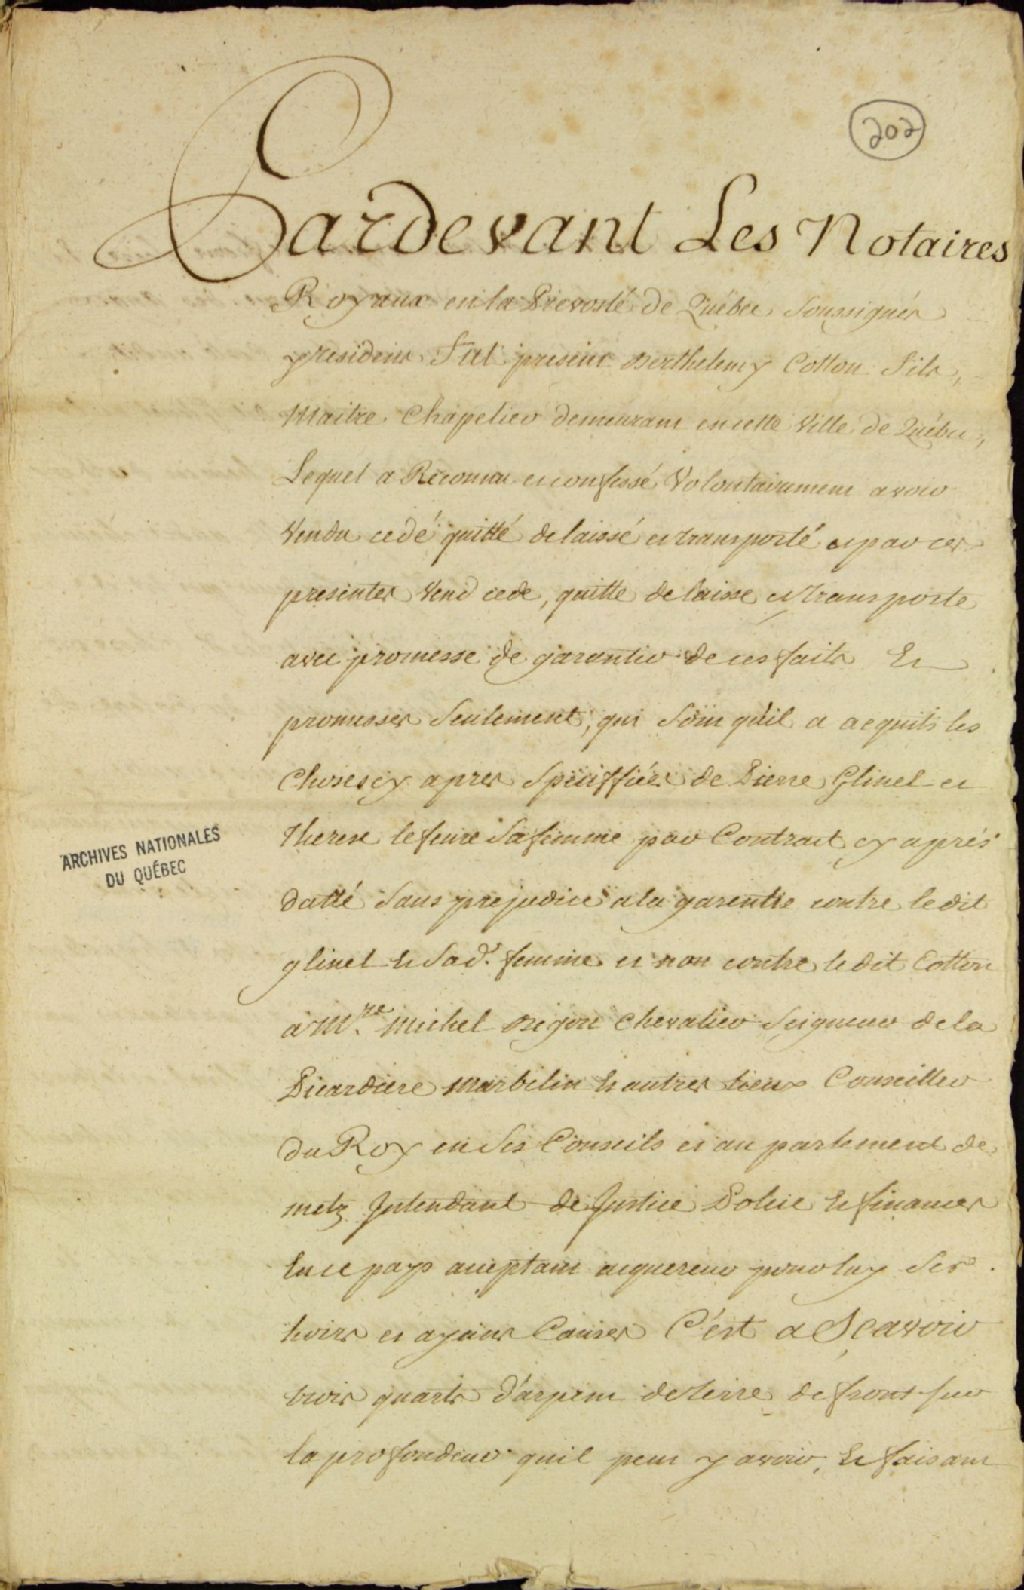 202
Pardevant Les Notaires
Royaux en la Prevosté de Québec soussignés
y residens fut present Berthelemy Cotton fils,
Maitre Chapelier demeurant en cette ville de Québec,
Lequel a Reconnu et confessé Volontairement avoir
Vendu cedé quitté delaissé et transporté et par ces
presentes Vend cede, quitte delaisse et transporte
avec promesse de garantir de ces faits Et
promesses seulement, qui sont qu'il a acquits les
choses cy apres speciffiées de Pierre Glinel et
Therese lefevre sa femme par Contract cy aprés
datté sans prejudice a la garentie contre ledit
glinel & sad.e femme et non contre ledit Cotton
à M.re Michel Begon Chevalier Seigneur de la
Picardiere Marbelin & autres lieux Conseiller
du Roy en ses Conseils et au parlement de
metz Intendant de Justice Police & finances
En ce pays acceptant acquereur pour luy ses
hoirs et ayans Causes C'est a Sçavoir
trois quarts d'arpent de terre de front sur
la profondeur quil peut y avoir, & faisant
ARCHIVES NATIONALES
DU QUÉBEC